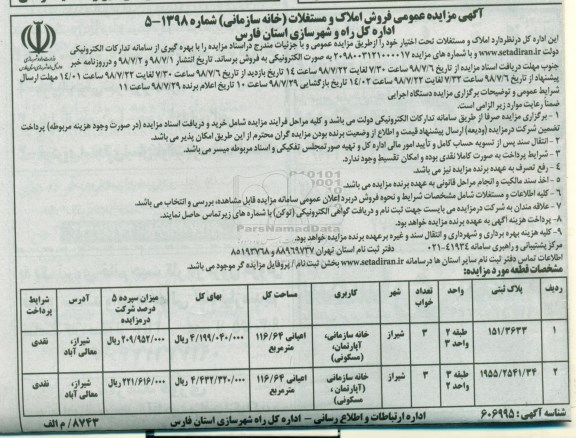 آگهی مزایده عمومی فروش املاک و مستغلات (خانه سازمانی) شماره ۱۳۹۸-۵
اداره کل راه و شهرسازی استان فارس
این اداره کل درنظردارد املاک و مستغلات تحت اختیار خود را ازطریق مزایده عمومی و با جزئیات مندرج دراسناد مزایده را با بهره گیری از سامانه تدارکات الکترونیکی
دولت www.setadiran.ir و با شماره های مزایده ۲۰۹۸۰۰۳۱۲۱۰۰۰۰۱۷ به صورت الکترونیکی به فروش برساند. تاریخ انتشار ۹۸/۷/۱ و ۹۸/۷/۲ و درروزنامه خبر
جنوب مهلت دریافت اسناد مزایده از تاریخ ۹۸/۷/۶ ساعت ۷/۳۰ لغایت ۹۸/۷/۲۲ ساعت ۱۴ تاریخ بازدید از تاریخ ۹۸/۷/۶ ساعت ۷/۳۰ لغایت ۹۸/۷/۲۲ ساعت ۱۴/۰۱ مهلت ارسال
پیشنهاد از تاریخ ۹۸/۷/۶ ساعت ۷/۳۲ لغایت ۹۸/۷/۲۲ ساعت ۱۴/۰۲ تاریخ بازگشایی ۹۸/۷/۲۹ ساعت ۱۰ تاریخ اعلام برنده ۹۸/۷/۲۹ ساعت ۱۱
شرایط عمومی و توضیحات برگزاری مزایده دستگاه اجرایی
ضمنا رعایت موارد زیر الزامی است.
۱ - برگزاری مزایده صرفا از طریق سامانه تدارکات الکترونیکی دولت می باشد و کلیه مراحل فرایند مزایده شامل خرید و دریافت اسناد مزایده (در صورت وجود هزینه مربوطه) پرداخت
تضمین شرکت درمزایده (ودیعه) ارسال پیشنهاد قیمت و اطلاع از وضعیت برنده بودن مزایده گران محترم از این طریق امکان پذیر می باشد.
۲ - انتقال سند پس از تسویه حساب کامل و تأیید امور مالی اداره کل و تهیه صورتمجلس تفکیکی و اسناد مربوطه میسر می باشد.
۳ - شرایط پرداخت به صورت کاملا نقدی بوده و امکان تقسیط وجود ندارد.
۴ - رفع تصرف به عهده برنده مزایده نیز می باشد.
۵ - نقد سند مالکیت و انجام مراحل قانونی به عهده برنده مزایده می باشد.
۶ - کلیه اطلاعات و مستغلات شامل مشخصات شرایط و نحوه فروش دربرد اعلان عمومی سامانه مزایده قابل مشاهده، بررسی و انتخاب می باشد.
۷ - علاقه مندان به شرکت درمزایده می بایست جهت ثبت نام و دریافت گواهی الکترونیکی (توکن) با شماره های زیر تماس حاصل نمایند.
۸ - پرداخت هزینه آگهی به عهده برنده مزایده خواهد بود.
۹- کلیه هزینه بهره برداری و شهرداری و انتقال سند و غیره برعهده برنده مزایده خواهد بود.
مرکز پشتیبانی و راهبری سامانه ۴۱۹۳۴-۰۲۱ دفتر ثبت نام استان تهران ۸۸۹۶۹۷۳۷ و ۸۵۱۹۳۷۶۸
اطلاعات تماس دفتر ثبت نام سایر استان ها درسامانه www.setadiran.ir بخش ثبت نام / پروفایل مزایده گر موجود می باشد.
ParsNamadData
مشخصات قطعه مورد مزایده:
ردیف پلاک ثبتی واحد تعداد خواب شهر کاربری مساحت کل بهای کل میزان سپرده ۵ درصد شرکت درمزایده آدرس شرایط پرداخت
۱ ۱۵۱/۳۶۳۳ طبقه ۲ واحد ۳ ۳ شیراز خانه سازمانی، آپارتمان، (مسکونی) اعیانی ۱۱۶/۶۴ مترمربع ۴/۱۹۹/۰۴۰/۰۰۰ ریال ۲۰۹/۹۵۲/۰۰۰ ریال شیراز، معالی آباد نقدی
۲ ۱۹۵۵/۲۵۴۱/۳۴ طبقه ۳ واحد ۲ ۳ شیراز خانه سازمانی (آپارتمان، مسکونی) اعیانی ۱۱۶/۶۴ مترمربع ۴/۴۳۲/۳۲۰/۰۰۰ ریال ۲۲۱/۶۱۶/۰۰۰ ریال شیراز، معالی آباد نقدی
شناسه آگهی: ۶۰۶۹۹۵ اداره ارتباطات و اطلاع رسانی - اداره کل راه شهرسازی استان فارس ۸۷۴۳/ م الف